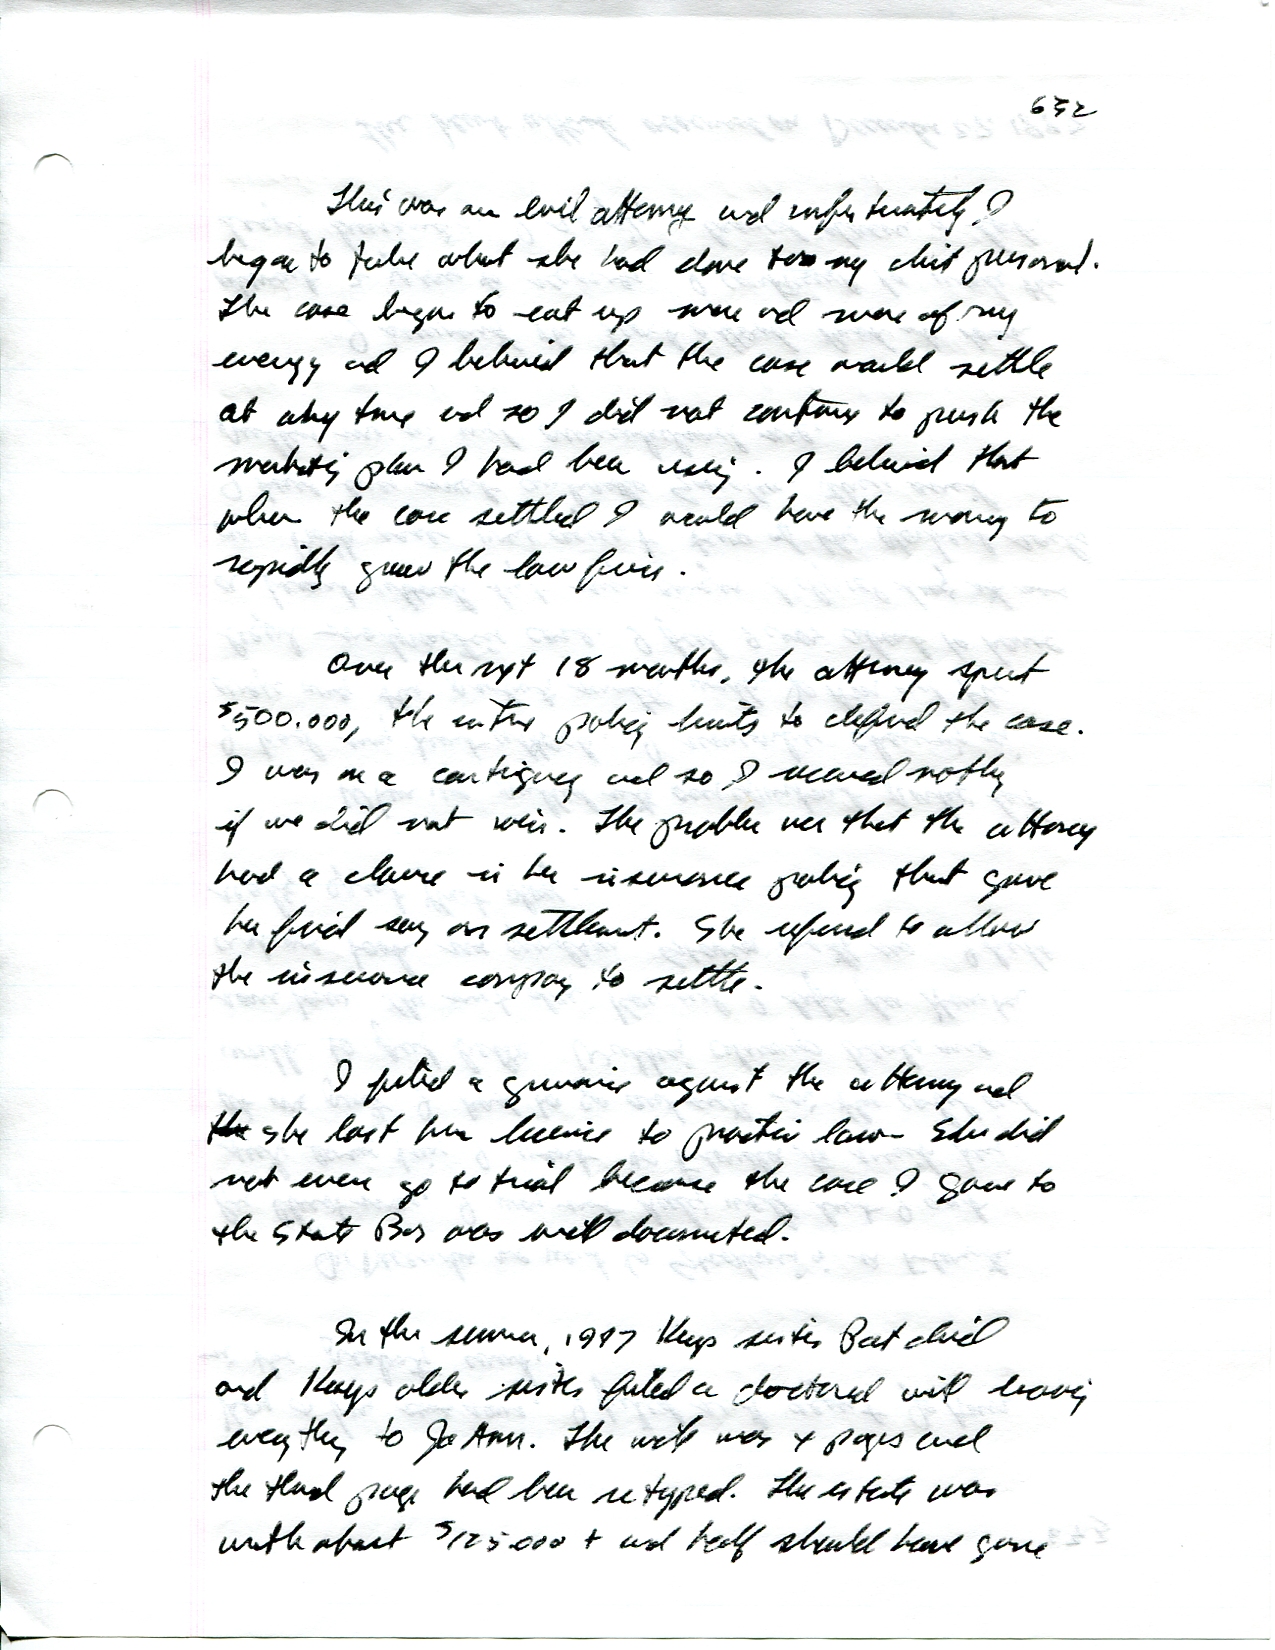 632
This was an evil attorney and unfortunately I
began to take what she had done to my client personal.
The case began to eat up more and more of my
energy and I believed that the case would settle
at any time and so I did not continue to push the
marketing plan I had been using. I believed that
when the case settled I would have the money to
rapidly grow the law firm.
Over the next 18 months, the attorney spent
$500.000, the entire policy limits to defend the case.
I was on a contigency and so I received nothing
if we did not win. The problem was that the attorney
had a clause in her insurance policy that gave
her final say on settlement. She refused to allow
the insurance company to settle.
I filed a grievance against the attorney and
she lost her license to practice law. She did
not even go to trial because the case I gave to
the State Bar was well documented.
In the summer, 1997 Kays sister Pat died
and Kays older sister filed a doctored will leaving
everything to JoAnn. The will was 4 pages and
the third page had been retyped. The estate was
worth about $125.000 + and half should have gone